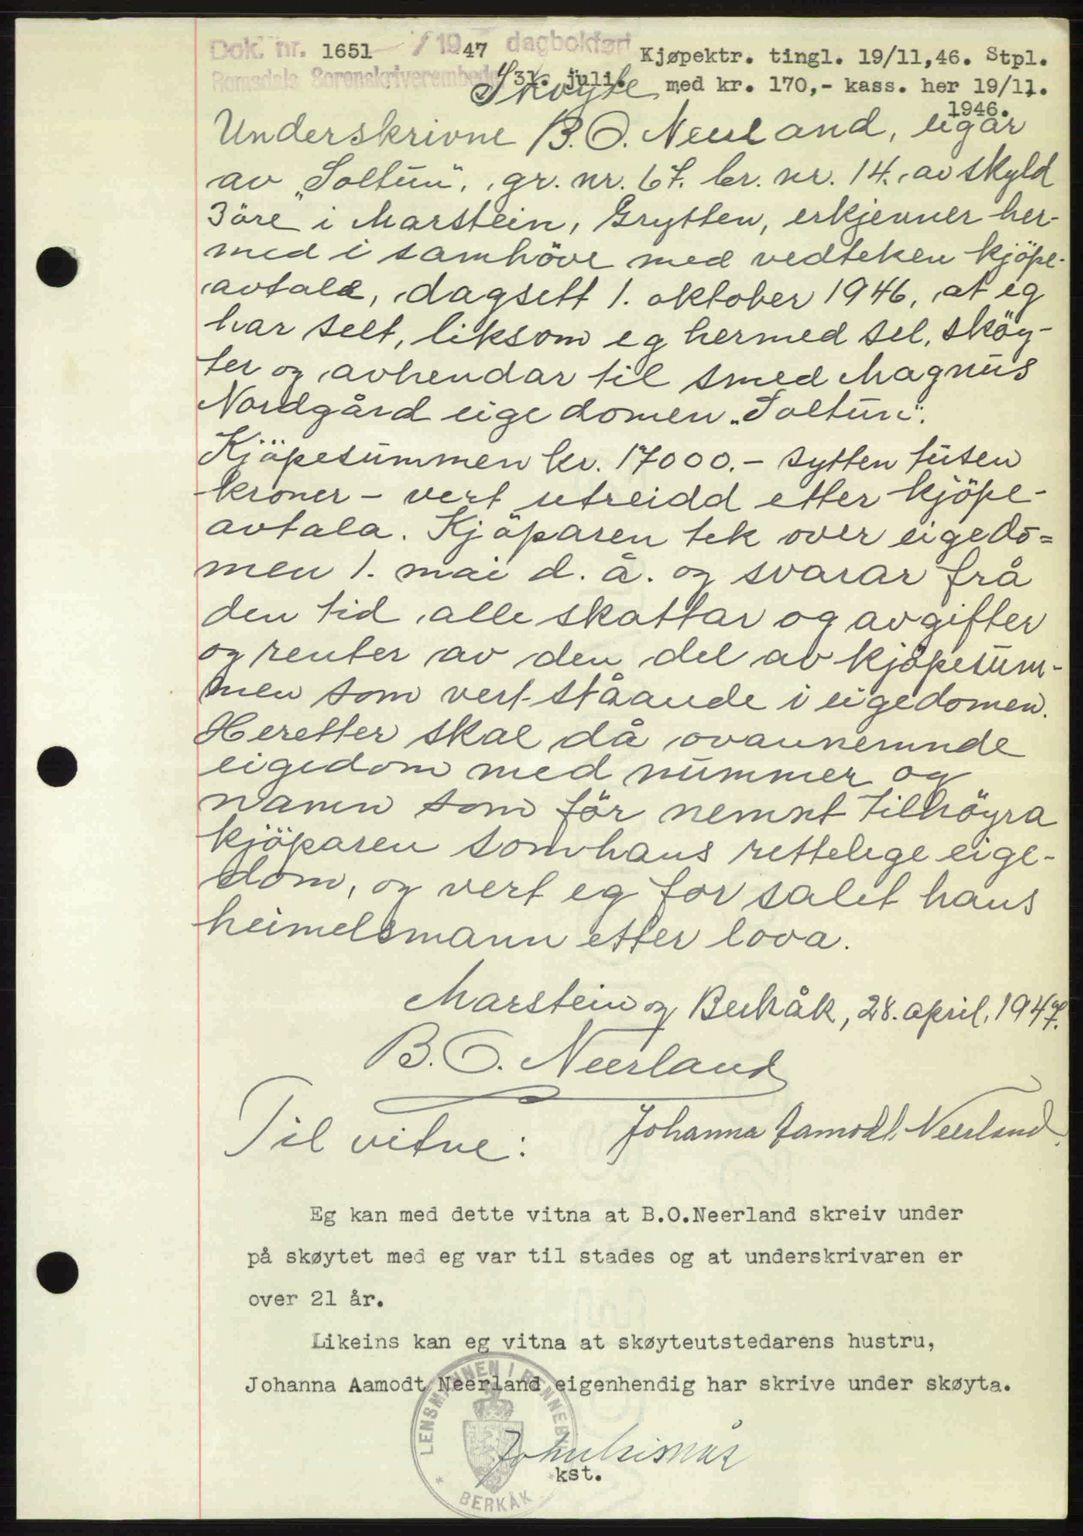 Dok. nr. 1651 / 1947 dagbokført Kjøpektr. tingl. 19/11,46. Stpl.
Romsdals Sorenskriverembede 31. juli. med kr. 170,- kass. her 19/11.
1946.
Skøyte
Underskrivne B. O. Neerland, eigar
av „Soltun", gr. nr. 67. br. nr. 14. av skyld
3 öre i Marstein, Grytten, erkjenner her-
med i samhöve med vedteken kjöpe-
avtale, dagsett 1. oktober 1946, at eg
har selt, liksom eg hermed sel, sköy-
ter og avhendar til smed Magnus
Nordgård eigedomen „Soltun".
Kjöpesummen kr. 17000.- sytten tusen
kroner - vert utreidd etter kjöpe-
avtala. Kjöparen tek over eigedo=
men 1. mai d. å. og svarar frå
den tid alle skattar og avgifter
og renter av den del av kjöpesum-
men som vert ståande i eigedomen.
Heretter skal då ovannemnde
eigedom med nummer og
namn som för nemnt tilhöyra
kjöparen som hans rettelege eige-
dom, og vert eg for salet hans
heimelsmann etter lova.
Marstein og Berkåk, 28. april. 1947.
B. O. Neerland
Til vitne: Johanna Aamodt Neerland.
Eg kan med dette vitna at B.O.Neerland skreiv under
på skøytet med eg var til stades og at underskrivaren er
over 21 år.
Likeins kan eg vitna at skøyteutstedarens hustru,
Johanna Aamodt Neerland eigenhendig har skrive under skøyta.
LENSMANNEN I RENNEBU
kst.
BERKÅK